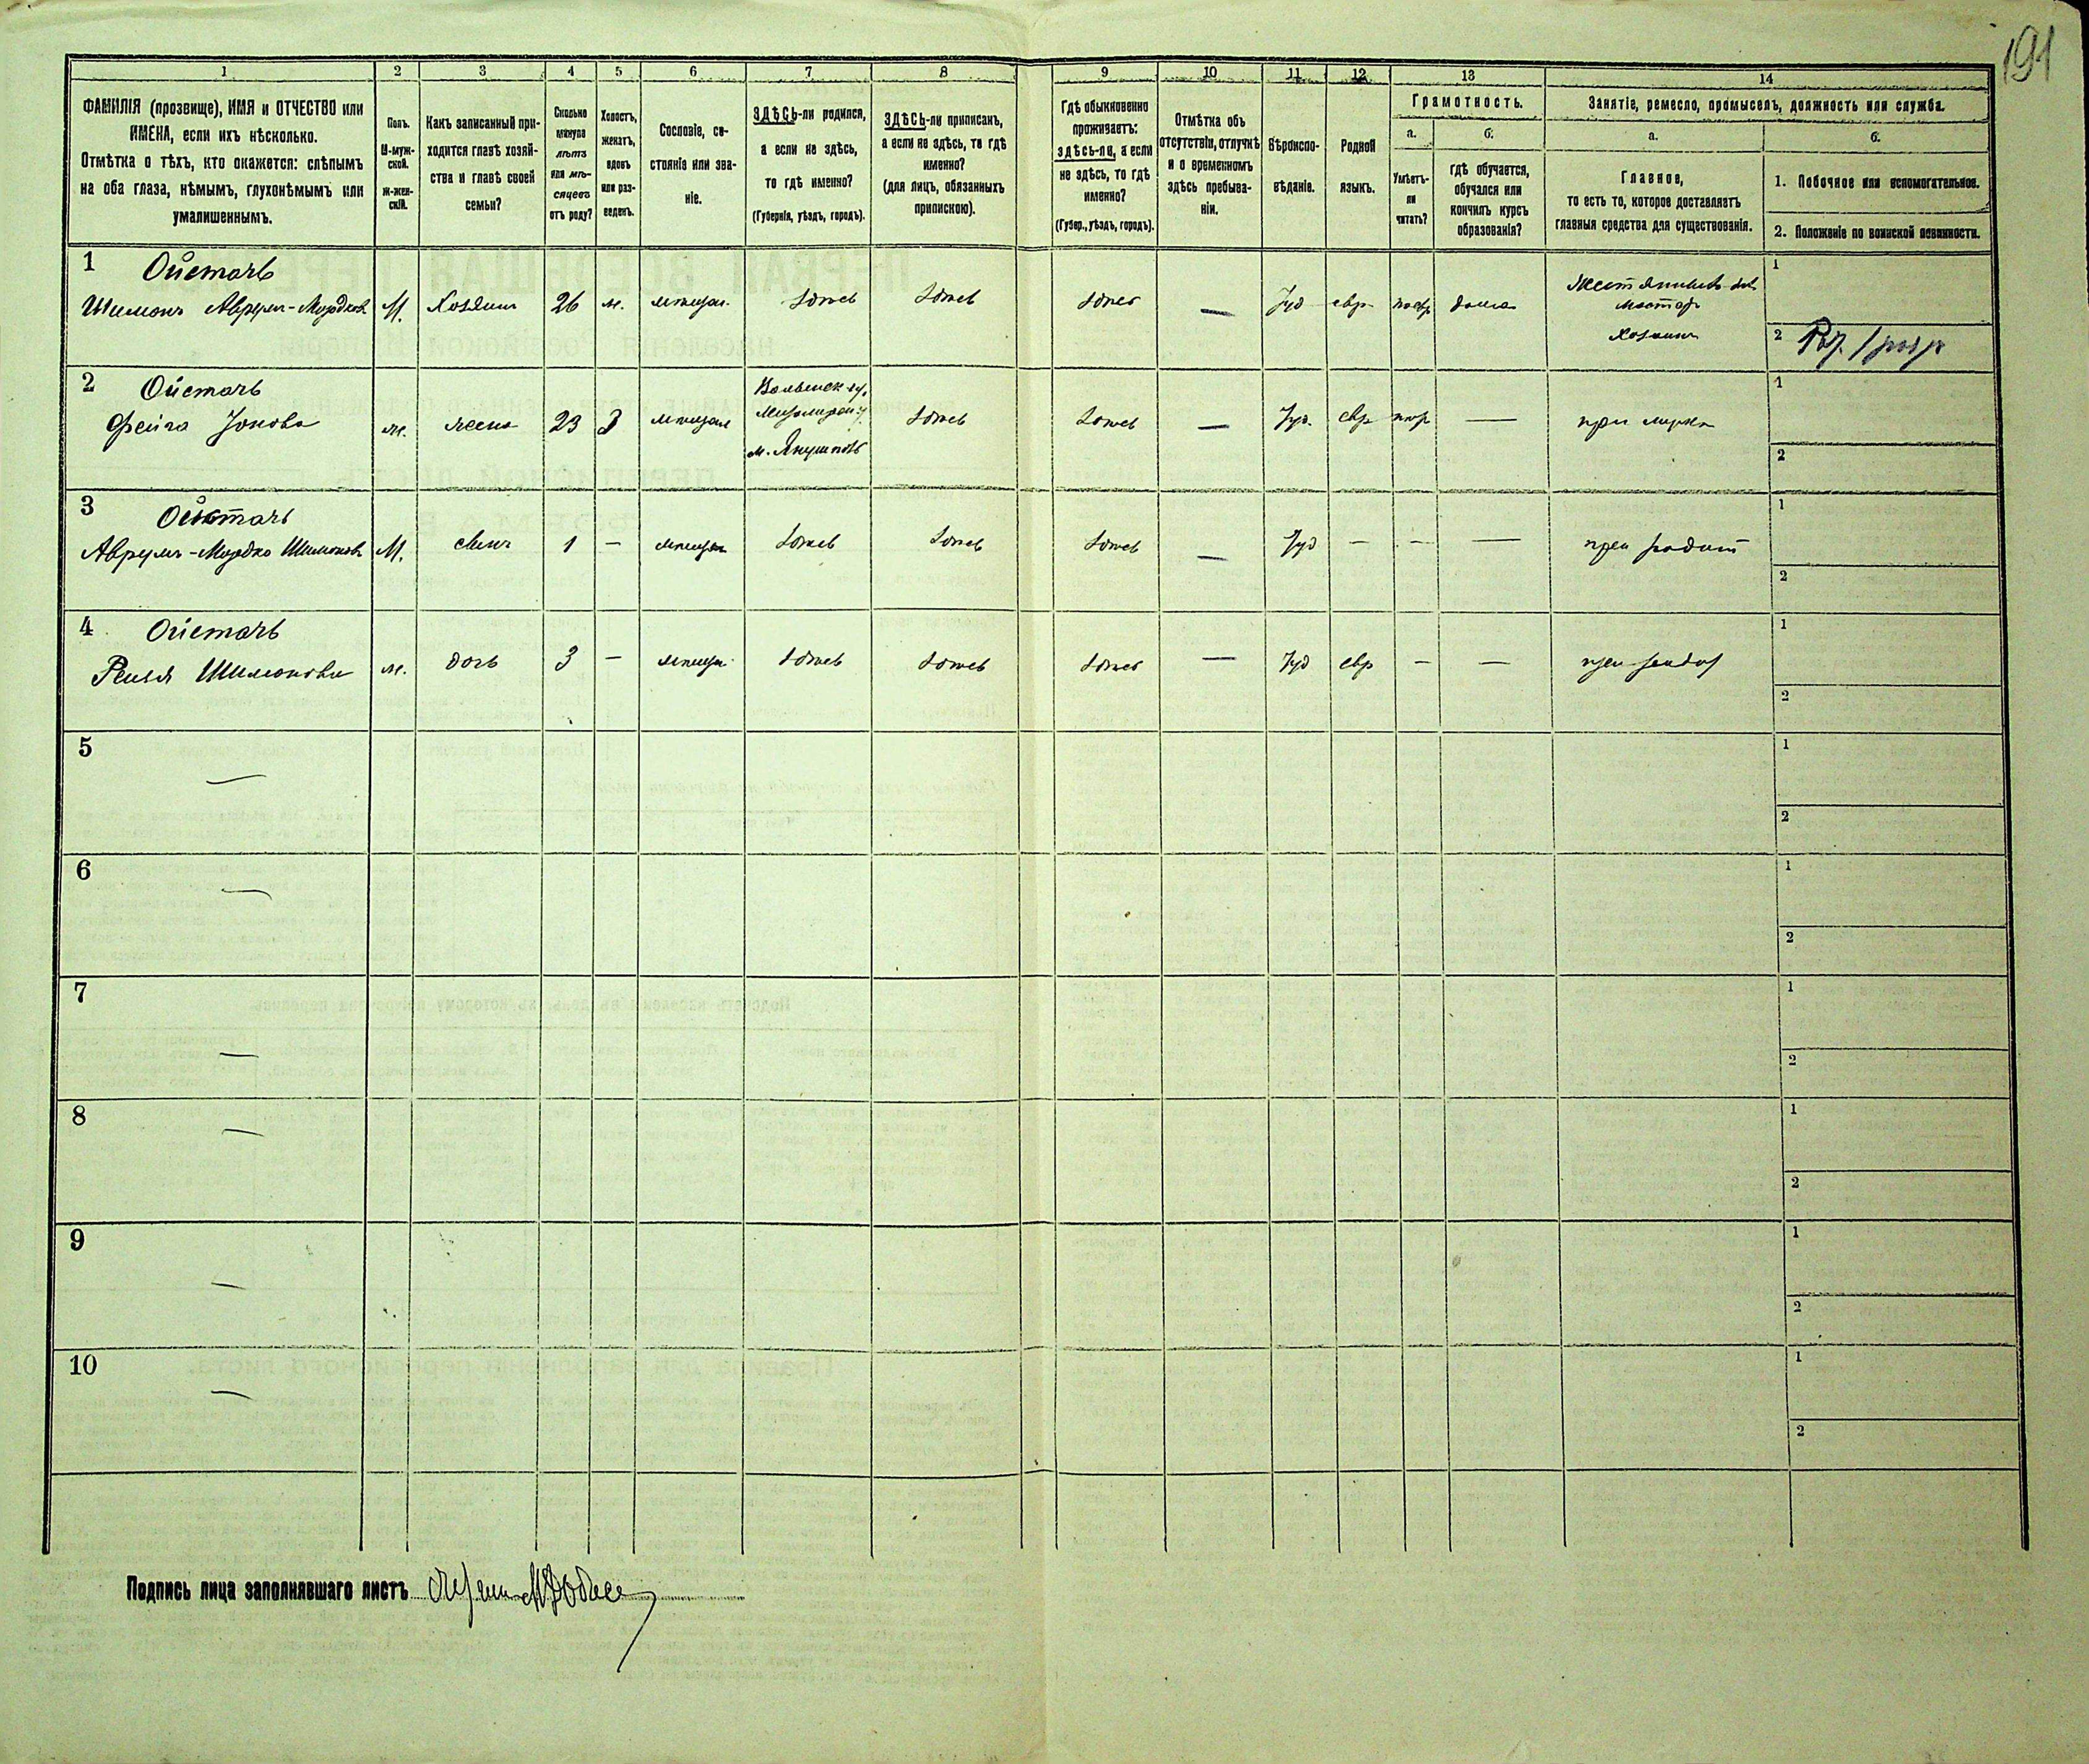 191
1 2 3 4 5 6 7 8 9 10 11 12 13 14
ФАМИЛІЯ (прозвище), ИМЯ и ОТЧЕСТВО или
ИМЕНА, если ихъ нѣсколько.
Отмѣтка о тѣхъ, кто окажется: слѣпымъ
на оба глаза, нѣмымъ, глухонѣмымъ или
умалишеннымъ.
Полъ.
М-муж-
ской.
ж-жен-
скій.
Какъ записанный при-
ходится главѣ хозяй-
ства и главѣ своей
семьи?
Сколько
минуло
лѣтъ
или мѣ-
сяцевъ
отъ роду?
Холостъ,
женатъ,
вдовъ
или раз-
веденъ.
Сословіе, со-
стояніе или зва-
ніе.
ЗДѢСЬ-ли родился,
а если не здѣсь,
то гдѣ именно?
(Губернія, уѣздъ, городъ).
ЗДѢСЬ-ли приписанъ,
а если не здѣсь, то гдѣ
именно?
(для лицъ, обязанныхъ
припискою).
Гдѣ обыкновенно
проживаетъ:
здѣсь-ли, а если
не здѣсь, то гдѣ
именно?
(Губер., уѣздъ, городъ).
Отмѣтка объ
отсутствіи, отлучкѣ
и о временномъ
здѣсь пребыва-
ніи.
Вѣроиспо-
вѣданіе.
Родной
языкъ.
Грамотность.
а.
Умѣетъ-
ли
читать?
б.
гдѣ обучается,
обучался или
кончилъ курсъ
образованія?
Занятіе, ремесло, промыселъ, должность или служба.
а.
Главное,
то есть то, которое доставляетъ
главныя средства для существованія.
б.
1. Побочное или вспомогательное.
2. Положеніе по воинской повинности.
1 Ойстачъ
Шимонъ Аврумъ-Мордков М. Хозяинъ 26 ж. мѣщан. здѣсь здѣсь здѣсь — Іуд евр дома
Хозяинъ
1
2
2 Ойстачъ
Фейга Іонова ж. жена 23 З мѣщан
Волынск гу.
м. Янушполь
здѣсь здѣсь — Іуд. евр — при мужѣ
1
2
3 Ойстачъ
Аврумъ-Мордко Шимоновъ М. сынъ 1 — мѣщан здѣсь здѣсь здѣсь — Іуд — — — при родит
1
2
4 Ойстачъ
Рейзя Шимонова ж. дочь 3 — мѣщан здѣсь здѣсь здѣсь — Іуд евр — — при родит
1
2
5 —
1
2
6 —
1
2
7 —
1
2
8 —
1
2
9 —
1
2
10 —
1
2
Подпись лица заполнявшаго листъ